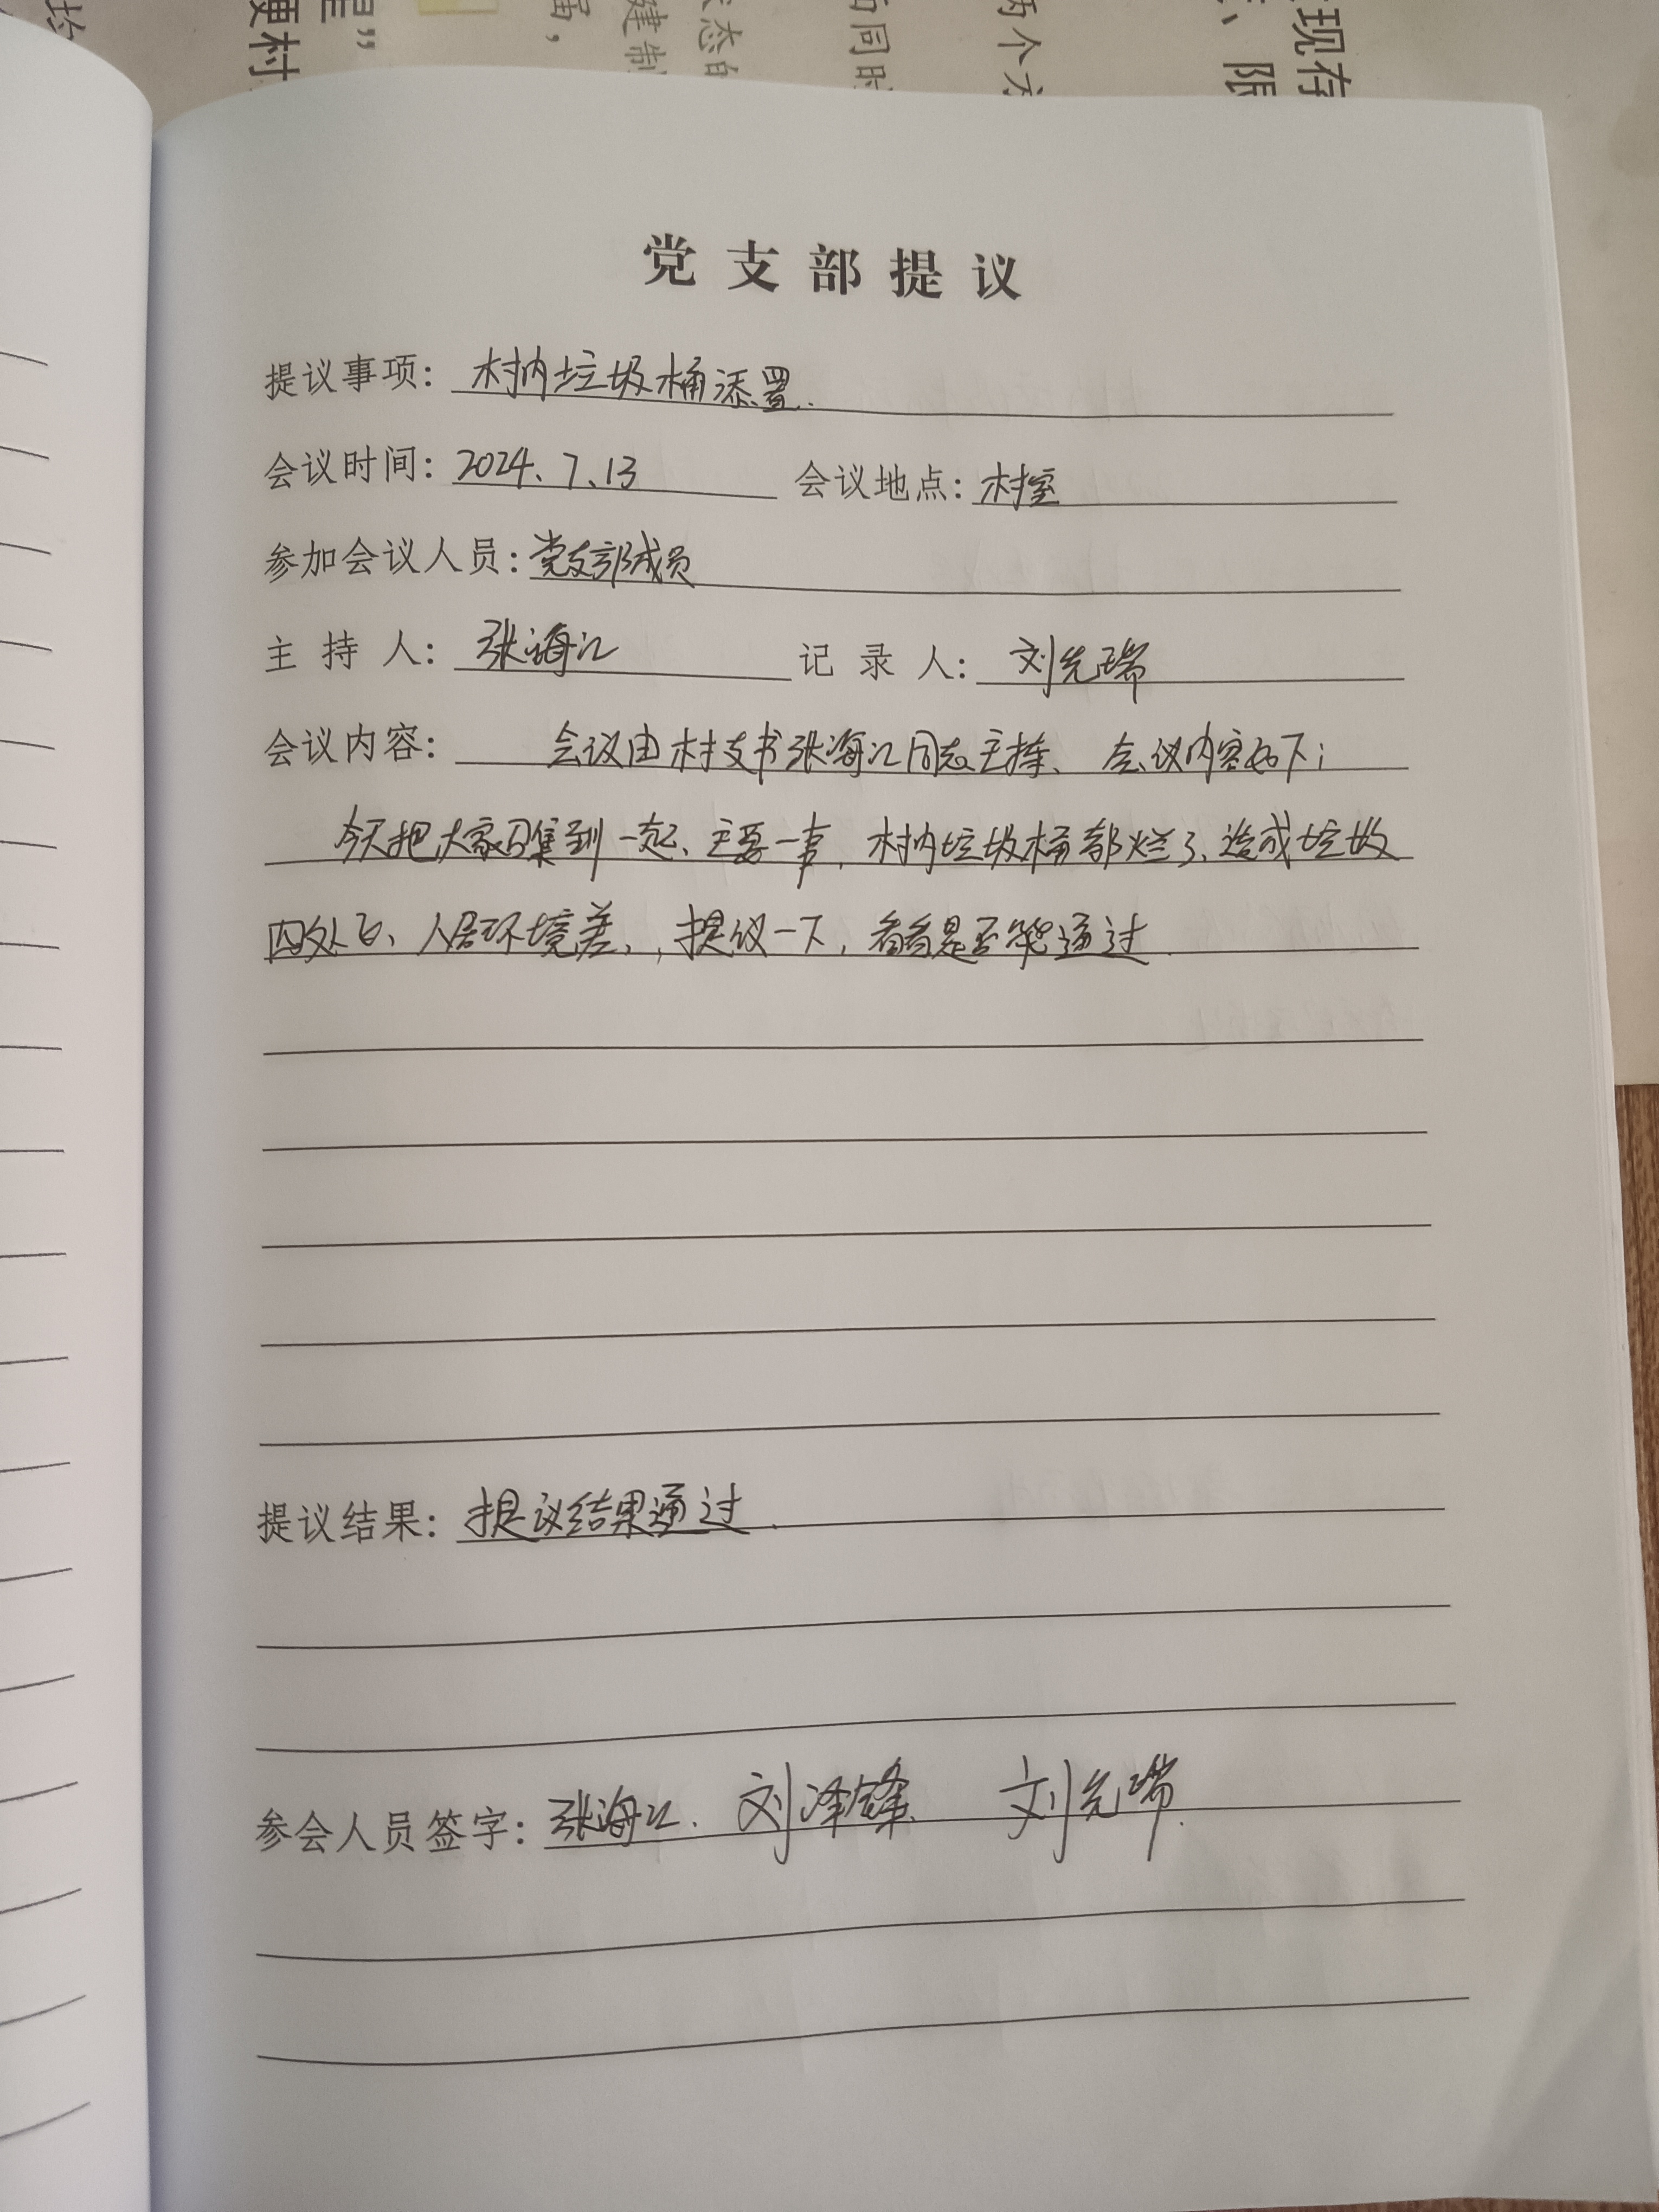 党支部提议
提议事项：村内垃圾桶添置.
会议时间：2024、7、13 会议地点：村室
参加会议人员：党支部成员
主持人：张海江 记录人：刘先瑞
会议内容：会议由村支书张海江同志主持、会议内容如下；
今天把大家召集到一起、主要一事，村内垃圾桶都烂了、造成垃圾
四处飞、人居环境差、，提议一下，看看是否能通过.
提议结果：提议结果通过.
参会人员签字：张海江. 刘泽锋. 刘先瑞.